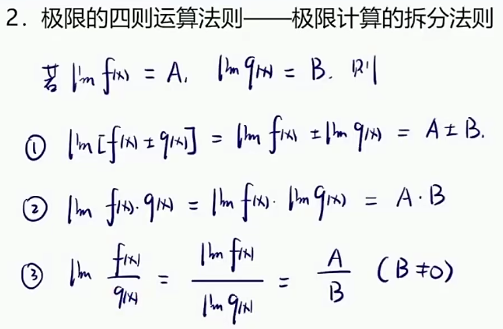 2. 极限的四则运算法则——极限计算的拆分法则
若 lim f(x) = A, lim g(x) = B. 则
① lim [f(x) ± g(x)] = lim f(x) ± lim g(x) = A ± B.
② lim f(x)·g(x) = lim f(x)· lim g(x) = A·B
③ lim f(x)/g(x) = lim f(x)/lim g(x) = A/B (B≠0)